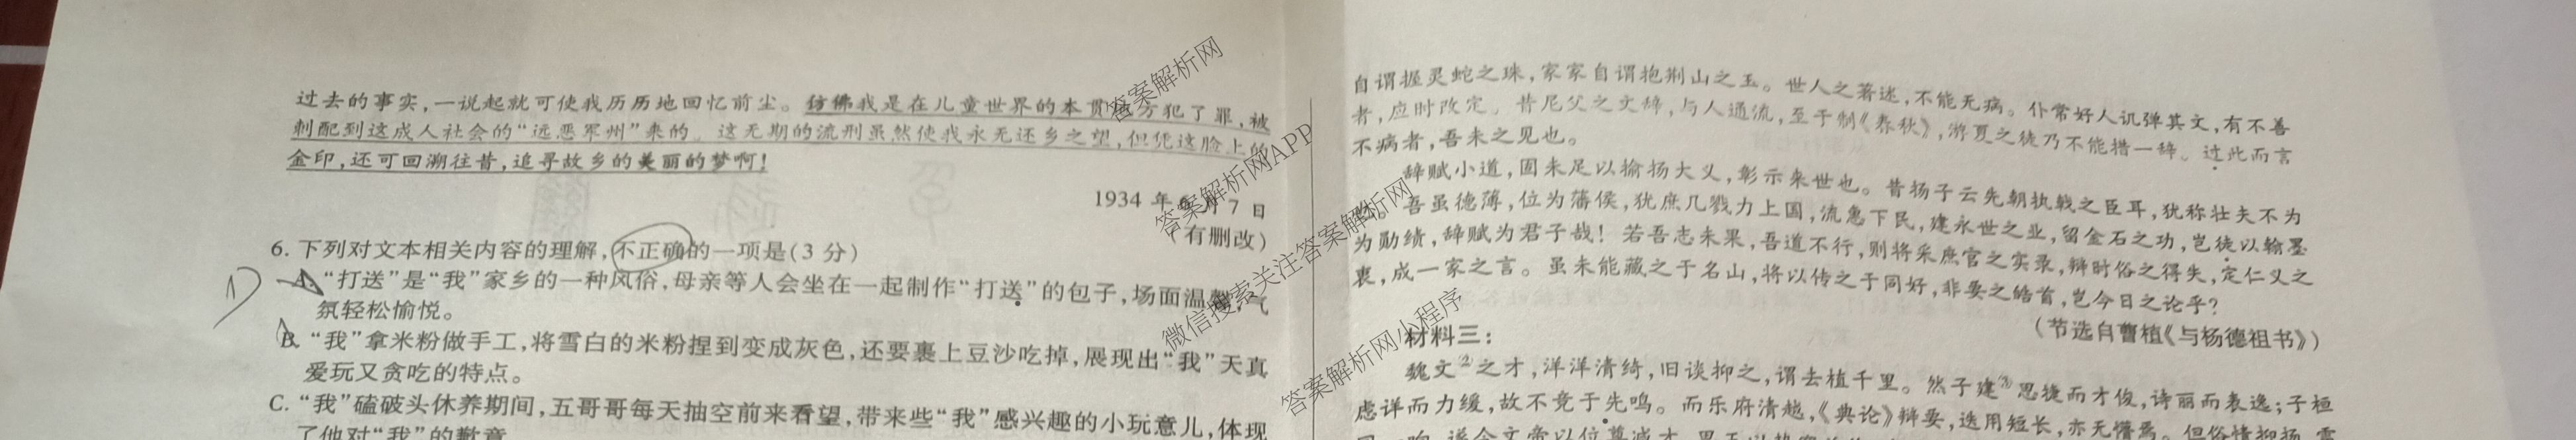 过去的事实,一说起就可使我历历地回忆前尘。仿佛我是在儿童世界的本贯地方犯了罪,被
刺配到这成人社会的“远恶军州”来的。这无期的流刑虽然使我永无还乡之望,但凭这脸上的
金印,还可回溯往昔,追寻故乡的美丽的梦啊!
1934 年 6 月 7 日
(有删改)
6. 下列对文本相关内容的理解,不正确的一项是(3 分)
A. “打送”是“我”家乡的一种风俗,母亲等人会坐在一起制作“打送”的包子,场面温馨,气
氛轻松愉悦。
B. “我”拿米粉做手工,将雪白的米粉捏到变成灰色,还要裹上豆沙吃掉,展现出“我”天真
爱玩又贪吃的特点。
C. “我”磕破头休养期间,五哥哥每天抽空前来看望,带来些“我”感兴趣的小玩意儿,体现
了他对“我”的歉意
自谓握灵蛇之珠,家家自谓抱荆山之玉。世人之著述,不能无病。仆常好人讥弹其文,有不善
者,应时改定。昔尼父之文辞,与人通流,至于制《春秋》,游夏之徒乃不能措一辞。过此而言
不病者,吾未之见也。
辞赋小道,固未足以揄扬大义,彰示来世也。昔扬子云先朝执戟之臣耳,犹称壮夫不为
也。吾虽德薄,位为藩侯,犹庶几戮力上国,流惠下民,建永世之业,留金石之功,岂徒以翰墨
为勋绩,辞赋为君子哉!若吾志未果,吾道不行,则将采庶官之实录,辩时俗之得失,定仁义之
衷,成一家之言。虽未能藏之于名山,将以传之于同好,非要之皓首,岂今日之论乎?
(节选自曹植《与杨德祖书》)
材料三:
魏文②之才,洋洋清绮,旧谈抑之,谓去植千里。然子建③思捷而才俊,诗丽而表逸;子桓
虑详而力缓,故不竞于先鸣。而乐府清越,《典论》辩要,迭用短长,亦无懵焉。但俗情抑扬,雷
同一响,遂令文帝以位尊减才,思王以势窘
答案解析网
答案解析网APP
微信搜索关注答案解析网
答案解析网小程序